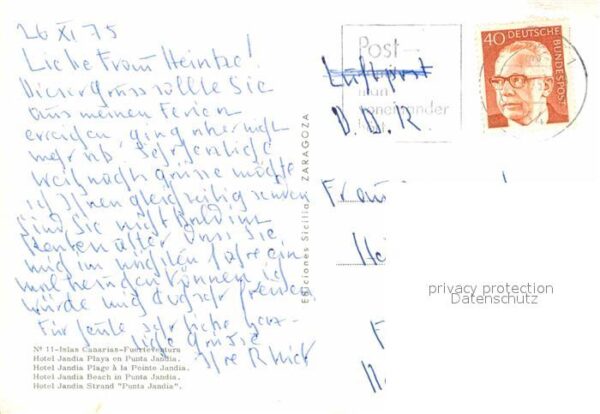 26 XI 75
Liebe Frau Heintze!
Dieser Gruss sollte Sie
aus meinen Ferien
erreichen, ging aber nicht
mehr ab. Sehr herzliche
Weihnachtsgrüsse möchte
ich Ihnen gleichzeitig senden
Sind Sie nicht bald im
Rentenalter dass Sie
mich im nächsten Jahre ein
mal besuchen können ich
würde mich doch sehr freuen
Für heute sehr liche herz-
liche Grüsse
Ihre R
Nº 11-Islas Canarias-Fuerteventura
Hotel Jandia Playa en Punta Jandia.
Hotel Jandia Plage à la Pointe Jandia.
Hotel Jandia Beach in Punta Jandia.
Hotel Jandia Strand "Punta Jandia".
Ediciones Sicilia ZARAGOZA
Post—
man
voneinander
40 DEUTSCHE
BUNDESPOST
Luftpost
D. D. R.
Frau
He
privacy protection
Datenschutz
F